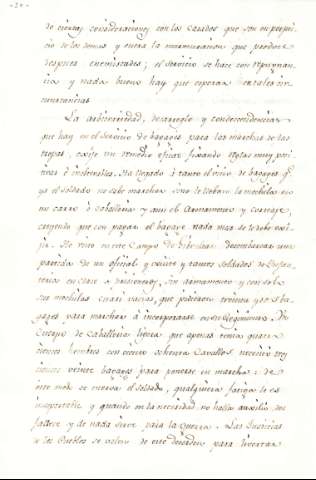 de ciertas consideraciones con los casados que son en perjui
cio de los demas y suena la murmuracion que produce
despues enemistades; el servicio se hace con repugnan
cia y nada bueno hay que esperar en tales cir
cunstancias
La arbitrariedad, desarreglo y condescendencias
que hay en el servicio de bagages para las marchas de las
tropas, exije un remedio eficaz fixando reglas muy posi
tivas é inalterables. Ha llegado á tanto el vicio de bagages q.e
ya el soldado no sabe marchar sino le llevan la mochila en
un carro ó caballeria y aun el Armamento y Correage
creyendo que con pagar el bagage nada mas se le debe exi
jir. He visto en este Campo de Gibraltar desembarcar una
partida de un oficial y veinte y tantos soldados de Infan
teria en clase de prisioneros, sin armamento y con solo
sus mochilas cuasi vacias, que pidieron treinta y ba
gages para marchar á incorporarse en su Regimiento. Un
Cuerpo de Caballeria ligera que apenas tenia quatro
cientos hombres con ciento ochenta Cavallos necesitó tres
cientos veinte bagages para ponerse en marcha: de
este modo se enerva el soldado, qualquiera fatiga le es
insoportable y quando en la necesidad no halla auxilio, des
fallece y de nada sirve para la Guerra. Las Justicias
de los Pueblos se valen de este desorden para libertar